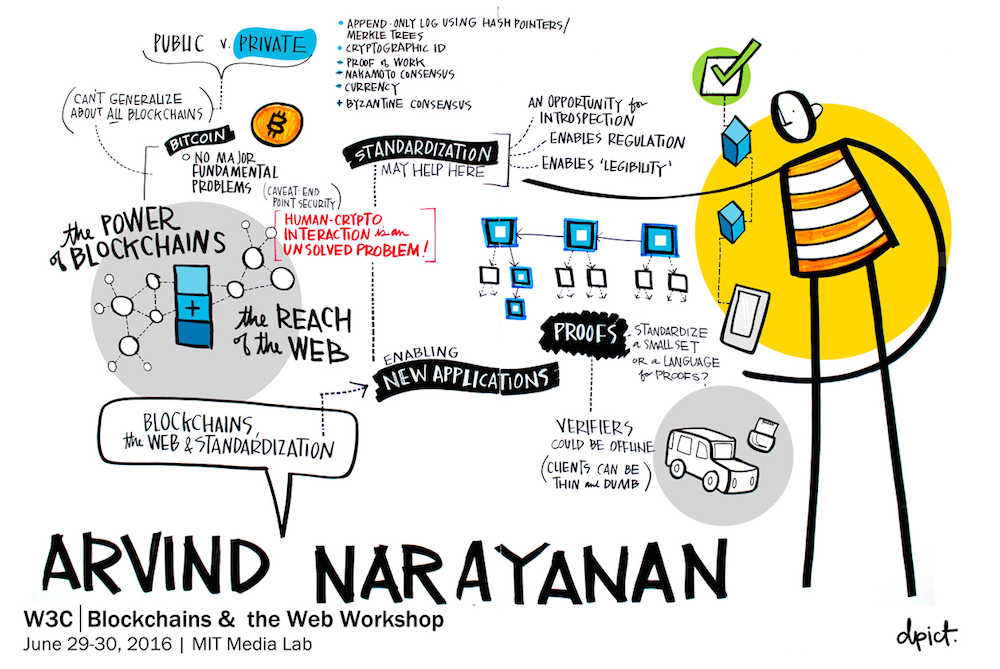 PUBLIC v. PRIVATE
• APPEND-ONLY LOG USING HASH POINTERS/
MERKLE TREES
• CRYPTOGRAPHIC ID
• PROOF of WORK
• NAKAMOTO CONSENSUS
• CURRENCY
+ BYZANTINE CONSENSUS
(CAN'T GENERALIZE
ABOUT ALL BLOCKCHAINS)
BITCOIN
B
NO MAJOR
FUNDAMENTAL
PROBLEMS
(CAVEAT: END
POINT SECURITY)
[HUMAN-CRYPTO
INTERACTION is an
UNSOLVED PROBLEM!]
the POWER
of BLOCKCHAINS
+
the REACH
of the WEB
STANDARDIZATION
MAY HELP HERE
AN OPPORTUNITY for
INTROSPECTION
ENABLES REGULATION
ENABLES 'LEGIBILITY'
PROOFS
STANDARDIZE
a SMALL SET
OR a LANGUAGE
for PROOFS?
ENABLING
NEW APPLICATIONS
VERIFIERS
COULD BE OFFLINE
(CLIENTS CAN BE
THIN and DUMB)
BLOCKCHAINS,
the WEB & STANDARDIZATION
ARVIND NARAYANAN
W3C | Blockchains & the Web Workshop
June 29-30, 2016 | MIT Media Lab
dpict.